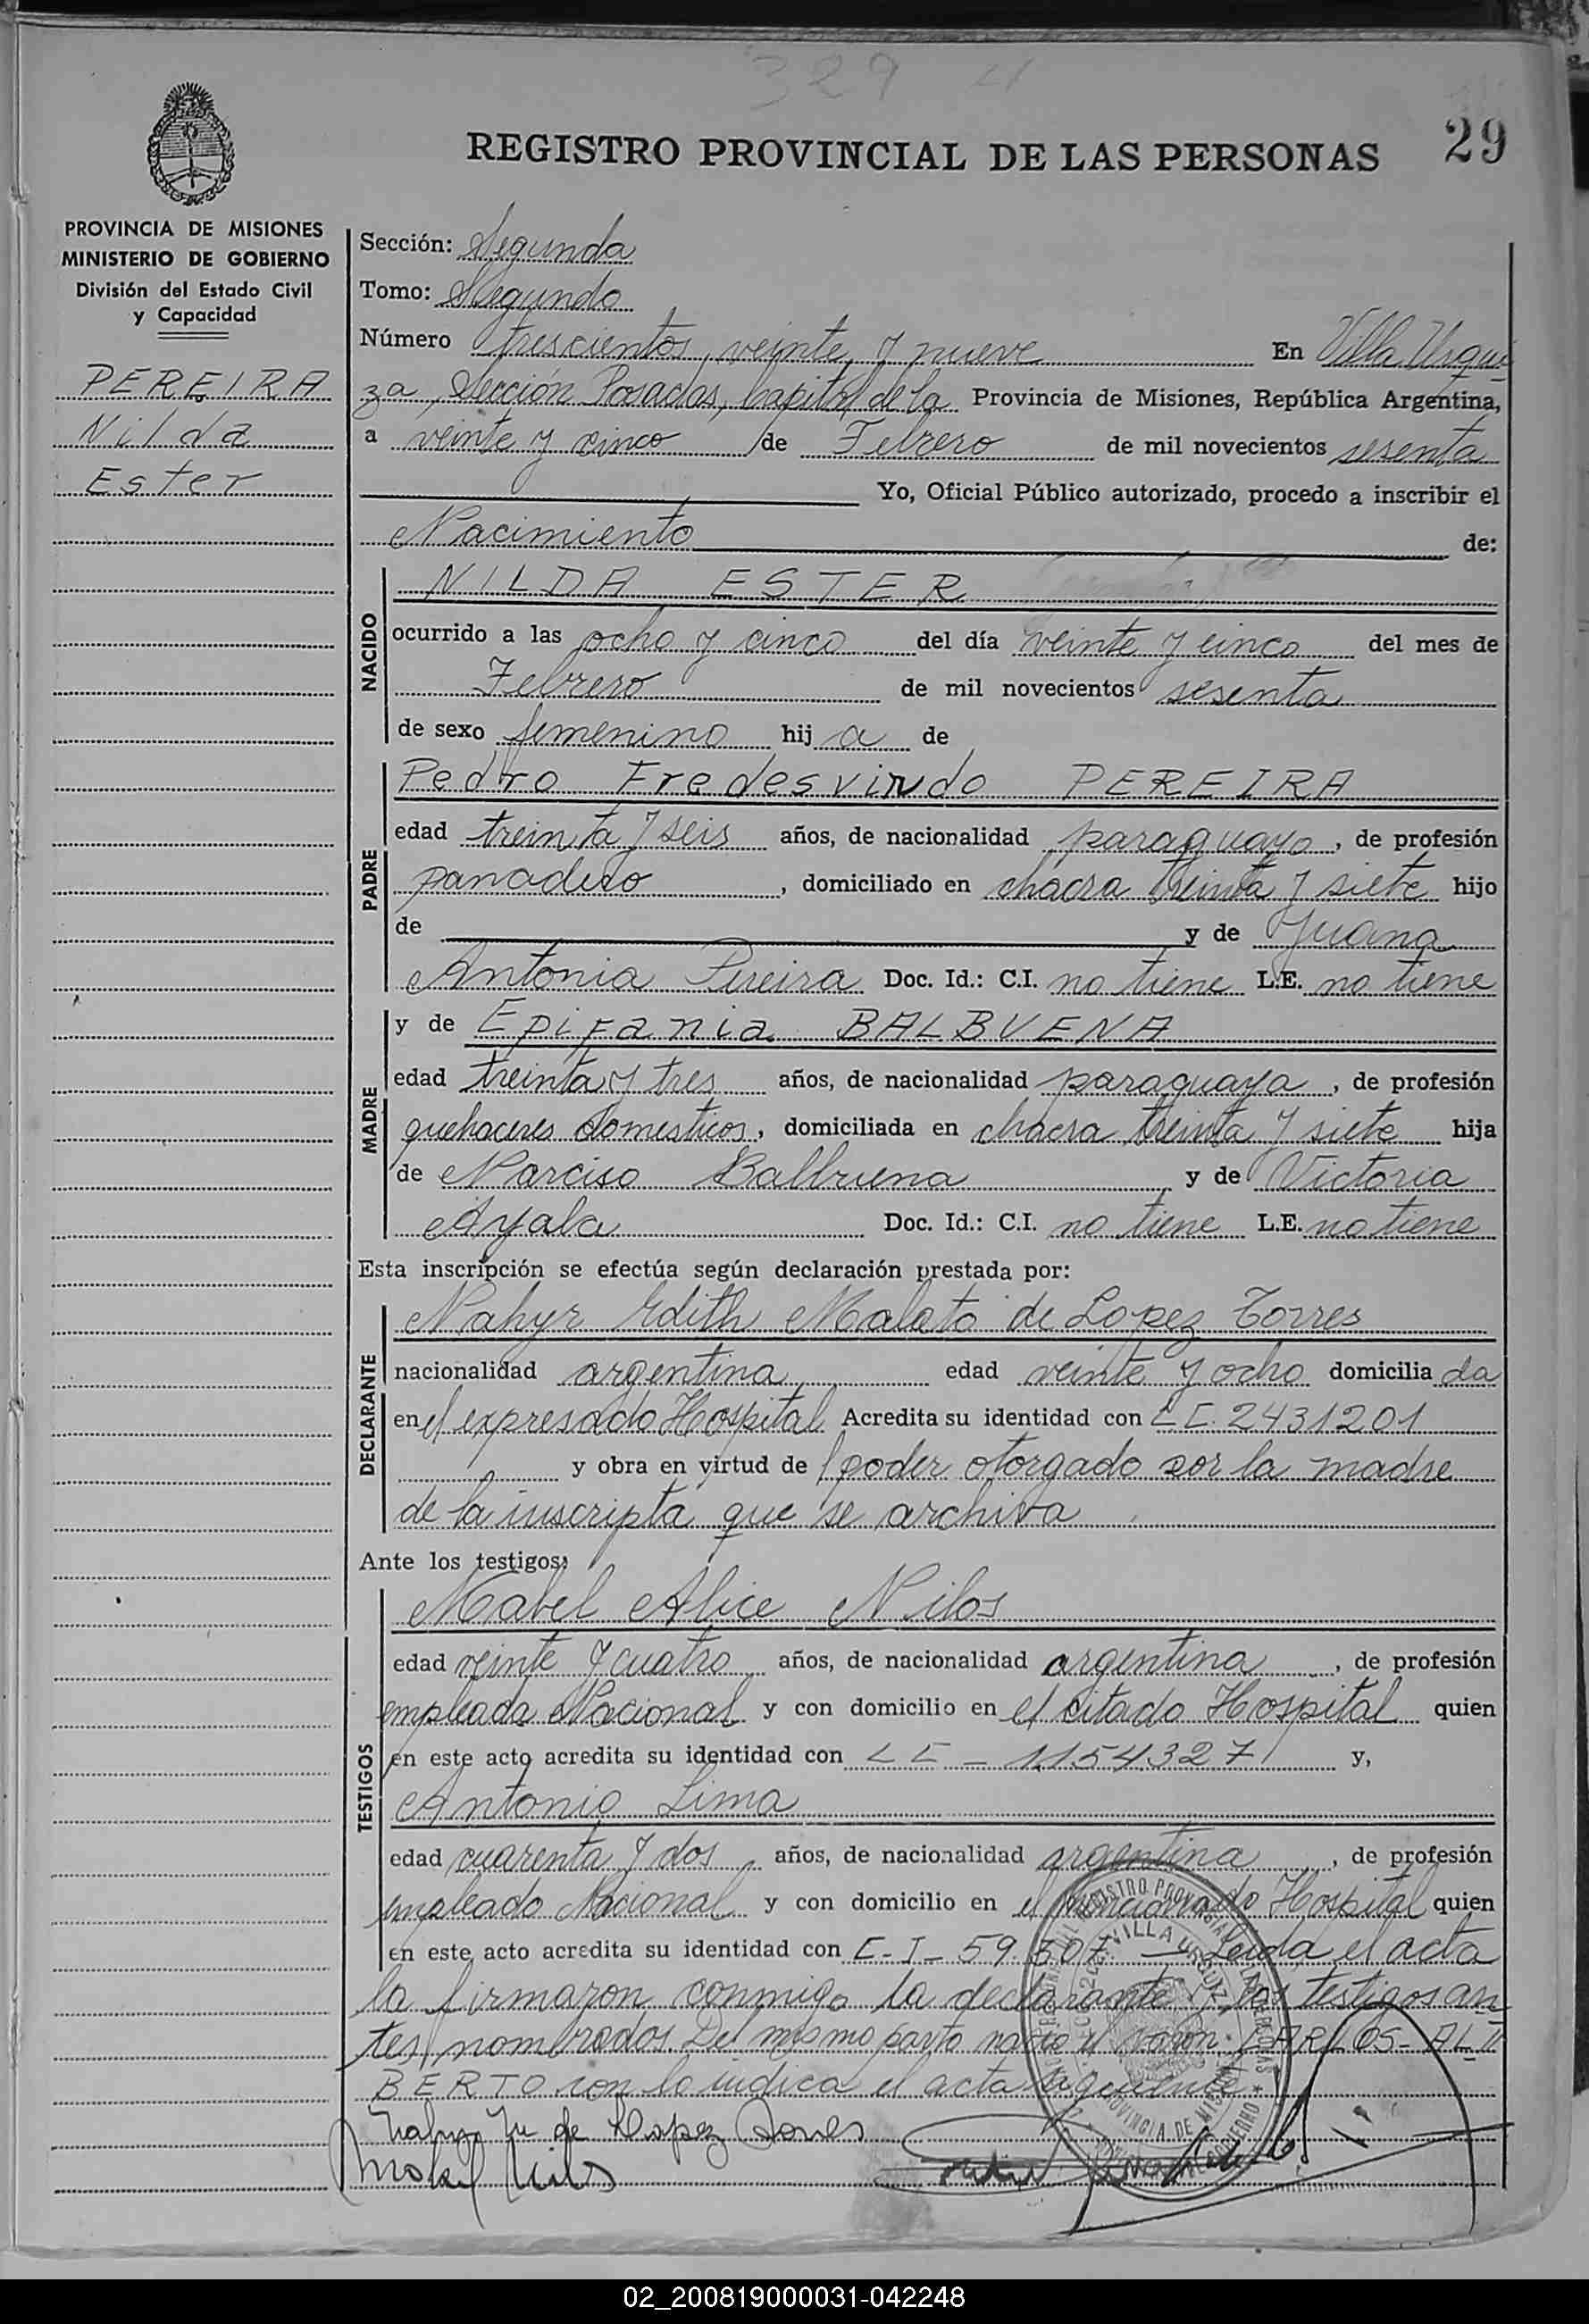 329
29
REGISTRO PROVINCIAL DE LAS PERSONAS
PROVINCIA DE MISIONES
MINISTERIO DE GOBIERNO
División del Estado Civil
y Capacidad
PEREIRA
Nilda
Ester
Sección: Segunda
Tomo: Segundo
Número trescientos, veinte, y nueve En Villa Urqui-
za, Sección Posadas, Capital de la Provincia de Misiones, República Argentina,
a veinte y cinco de Febrero de mil novecientos sesenta
Yo, Oficial Público autorizado, procedo a inscribir el
Nacimiento de:
NACIDO
NILDA ESTER
ocurrido a las ocho y cinco del día veinte y cinco del mes de
Febrero de mil novecientos sesenta
de sexo femenino hij a de
PADRE
Pedro Fredesvindo PEREIRA
edad treinta y seis años, de nacionalidad paraguayo, de profesión
panadero, domiciliado en chacra treinta y siete hijo
de y de Juana
Antonia Pereira Doc. Id.: C.I. no tiene L.E. no tiene
MADRE
y de Epifania BALBUENA
edad treinta y tres años, de nacionalidad paraguaya, de profesión
quehaceres domesticos, domiciliada en chacra treinta y siete hija
de Narciso Balbuena y de Victoria
Ayala Doc. Id.: C.I. no tiene L.E. no tiene
Esta inscripción se efectúa según declaración prestada por:
DECLARANTE
Nahyr Edith Malato de Lopez Torres
nacionalidad argentina edad veinte y ocho domicilia da
en el expresado Hospital Acredita su identidad con LC. 2431201
y obra en virtud de poder otorgado por la madre
de la inscripta que se archiva
Ante los testigos:
TESTIGOS
Mabel Alice Nilos
edad veinte y cuatro años, de nacionalidad argentina, de profesión
empleada Nacional y con domicilio en el citado Hospital quien
en este acto acredita su identidad con LC - 1154327 y,
Antonio Lima
edad cuarenta y dos años, de nacionalidad argentina, de profesión
empleado Nacional y con domicilio en el mencionado Hospital quien
en este acto acredita su identidad con C-I- 59.307. — Leida el acta
la firmaron conmigo la declarante y los testigos an
tes nombrados. Del mismo parto nació el varon: CARLOS-AL
BERTO con lo indica el acta siguiente.
de Lopez Torres
02_200819000031-042248